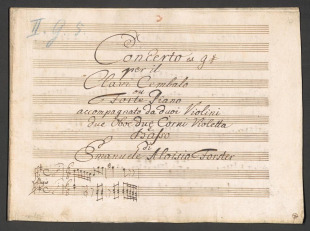 Concerto in g#
per il
Clavi Cembalo
ou
Forte Piano
acompagnato da duoi Violini
due Oboe due Corni Violetta
Basso
di
Emanuele Aloisio Forster